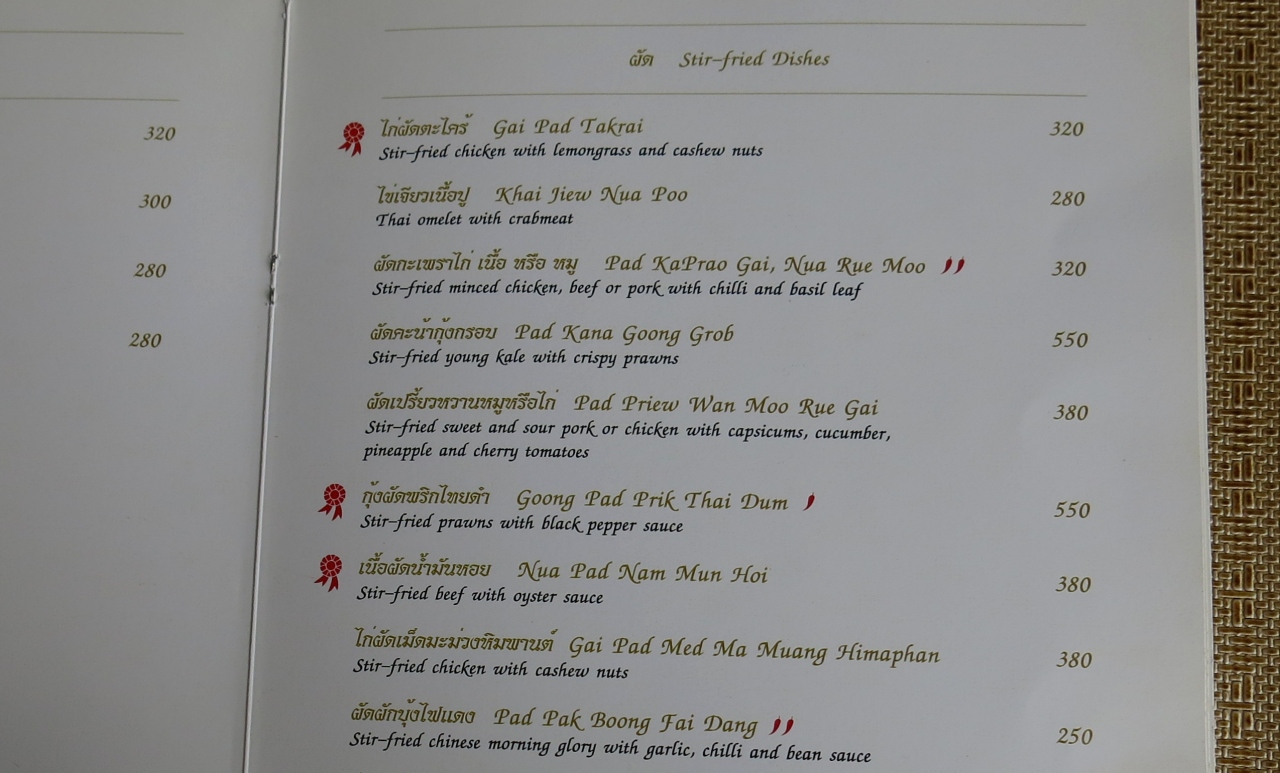 320
300
280
280
ผัด Stir-fried Dishes
ไก่ผัดตะไคร้ Gai Pad Takrai 320
Stir-fried chicken with lemongrass and cashew nuts
ไข่เจียวเนื้อปู Khai Jiew Nua Poo 280
Thai omelet with crabmeat
ผัดกะเพราไก่ เนื้อ หรือ หมู Pad KaPrao Gai, Nua Rue Moo 320
Stir-fried minced chicken, beef or pork with chilli and basil leaf
ผัดคะน้ากุ้งกรอบ Pad Kana Goong Grob 550
Stir-fried young kale with crispy prawns
ผัดเปรี้ยวหวานหมูหรือไก่ Pad Priew Wan Moo Rue Gai 380
Stir-fried sweet and sour pork or chicken with capsicums, cucumber,
pineapple and cherry tomatoes
กุ้งผัดพริกไทยดำ Goong Pad Prik Thai Dum 550
Stir-fried prawns with black pepper sauce
เนื้อผัดน้ำมันหอย Nua Pad Nam Mun Hoi 380
Stir-fried beef with oyster sauce
ไก่ผัดเม็ดมะม่วงหิมพานต์ Gai Pad Med Ma Muang Himaphan 380
Stir-fried chicken with cashew nuts
ผัดผักบุ้งไฟแดง Pad Pak Boong Fai Dang 250
Stir-fried chinese morning glory with garlic, chilli and bean sauce